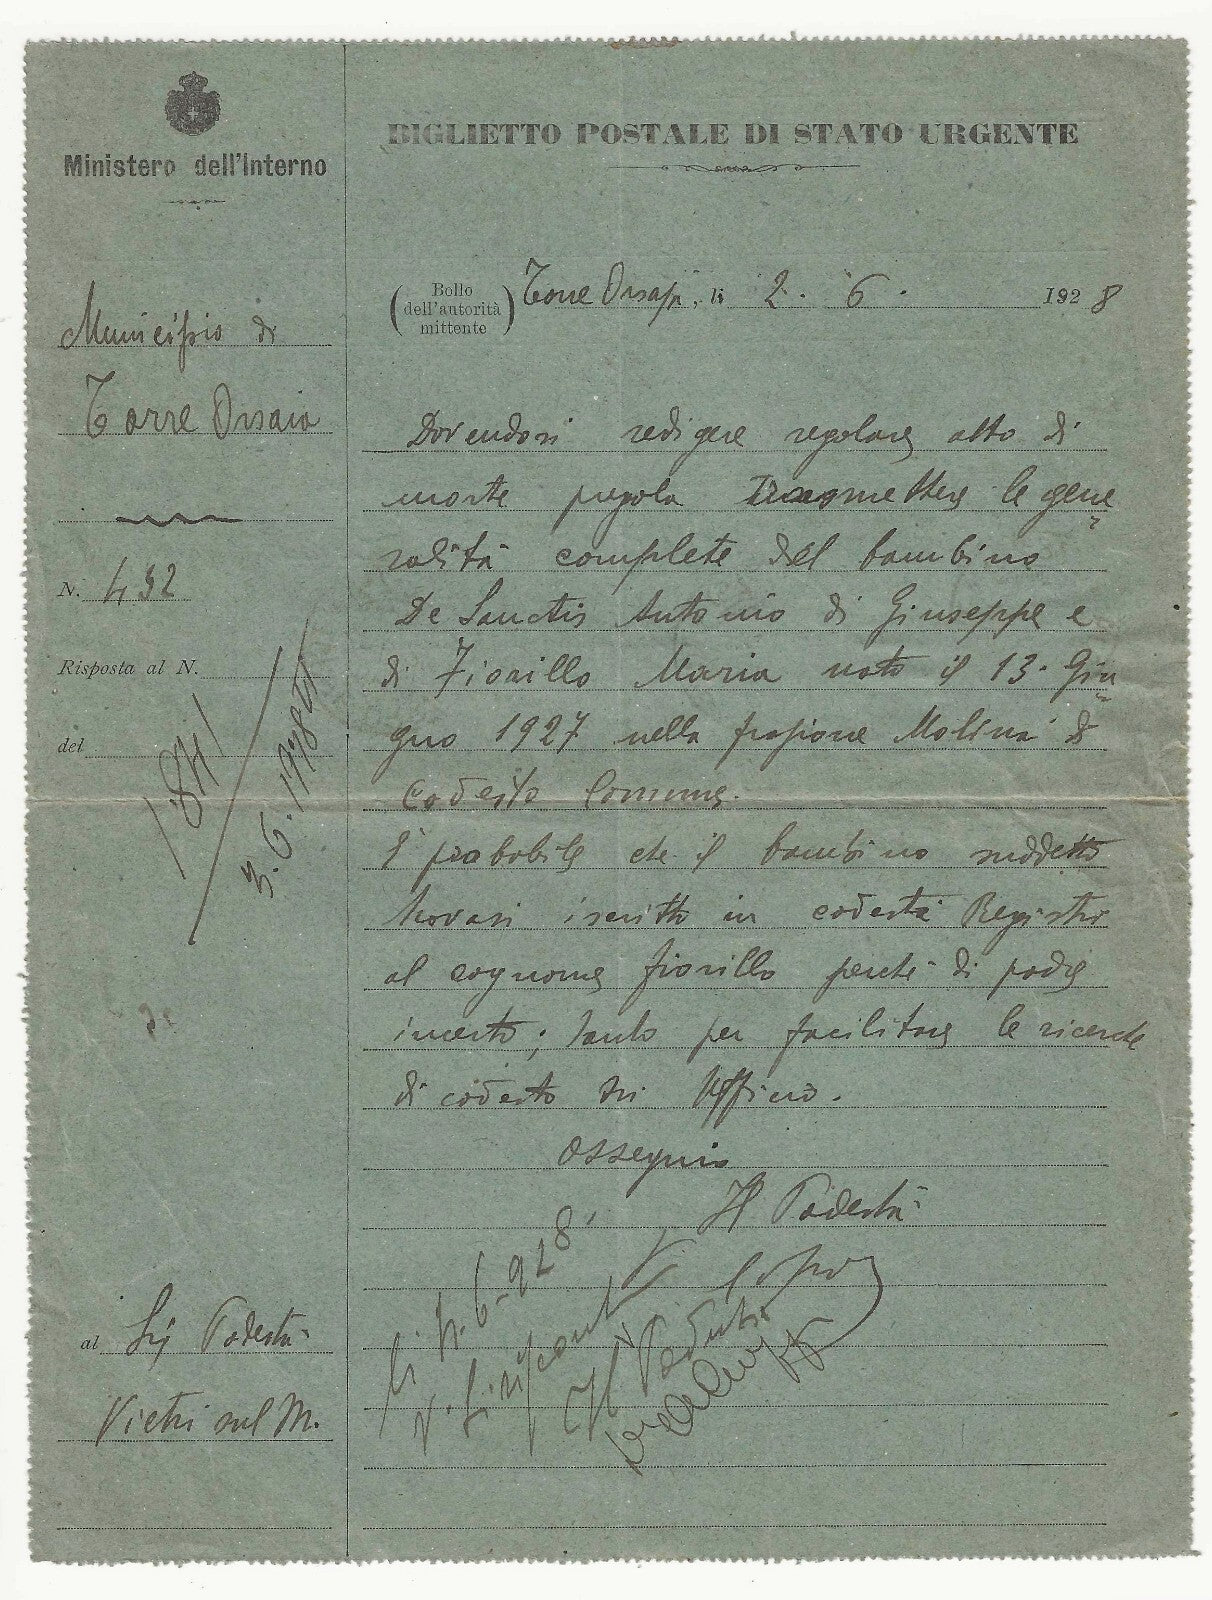 Ministero dell'Interno
Municipio di
Torre Orsaia
N. 432
Risposta al N.
del
1841
3.6.1928
al Sig Podestà
Vietri sul M.
BIGLIETTO POSTALE DI STATO URGENTE
(Bollo dell'autorità mittente) Torre Orsaja, li 2. 6. 1928
Dovendosi redigere regolare atto di
morte pregola trasmettere le gene
ralità complete del bambino
De Sanctis Antonio di Giuseppe e
di Fiorillo Maria nato il 13 Giu
gno 1927 nella frazione Molina di
codesto Comune.
E' probabile che il bambino suddetto
trovasi iscritto in codesto Registro
al cognome Fiorillo perché di padre
incerto; tanto per facilitare le ricerche
di codesto Ufficio.
Ossequio
Il Podestà
li 4-6-928
Il Podestà